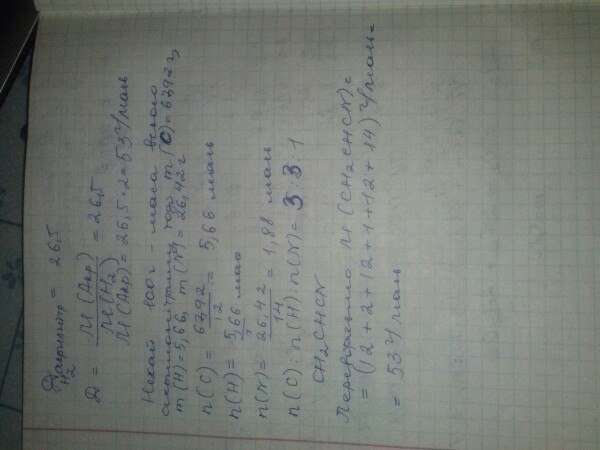 D акрилнітр H₂ = 26,5
D = M(Акр) / M(H₂) = 26,5
M(Акр) = 26,5 · 2 = 53 г/моль
Нехай 100 г - маса всього
акрилонітрилу, тоді m(C) = 67,92 г,
m(H) = 5,66, m(N) = 26,42 г
n(C) = 67,92 / 12 = 5,66 моль
n(H) = 5,66 моль
n(N) = 26,42 / 14 = 1,88 моль
n(C) : n(H) : n(N) = 3 : 3 : 1
CH₂CHCN
Перевіряємо M(CH₂CHCN) =
= (12 + 2 + 12 + 1 + 12 + 14) г/моль =
= 53 г/моль